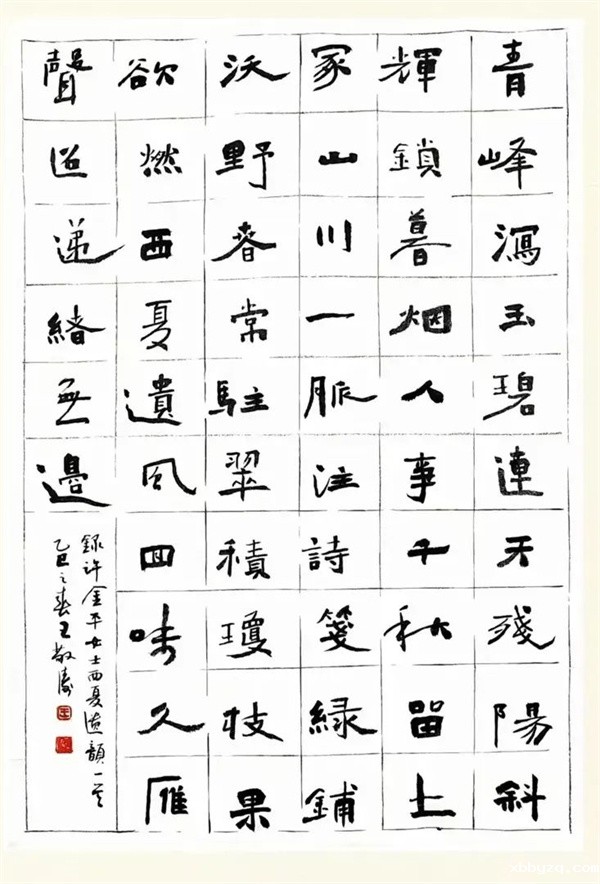 青峰瀉玉碧連天殘陽斜
輝鎖暮烟人事千秋留土
冢山川一脈注詩箋緑鋪
沃野春常駐翠積瓊枝果
欲燃西夏遺風回味久雁
聲迢遞緒無邊
録许金平女士西夏遺韻一首
乙巳之春王敬濤